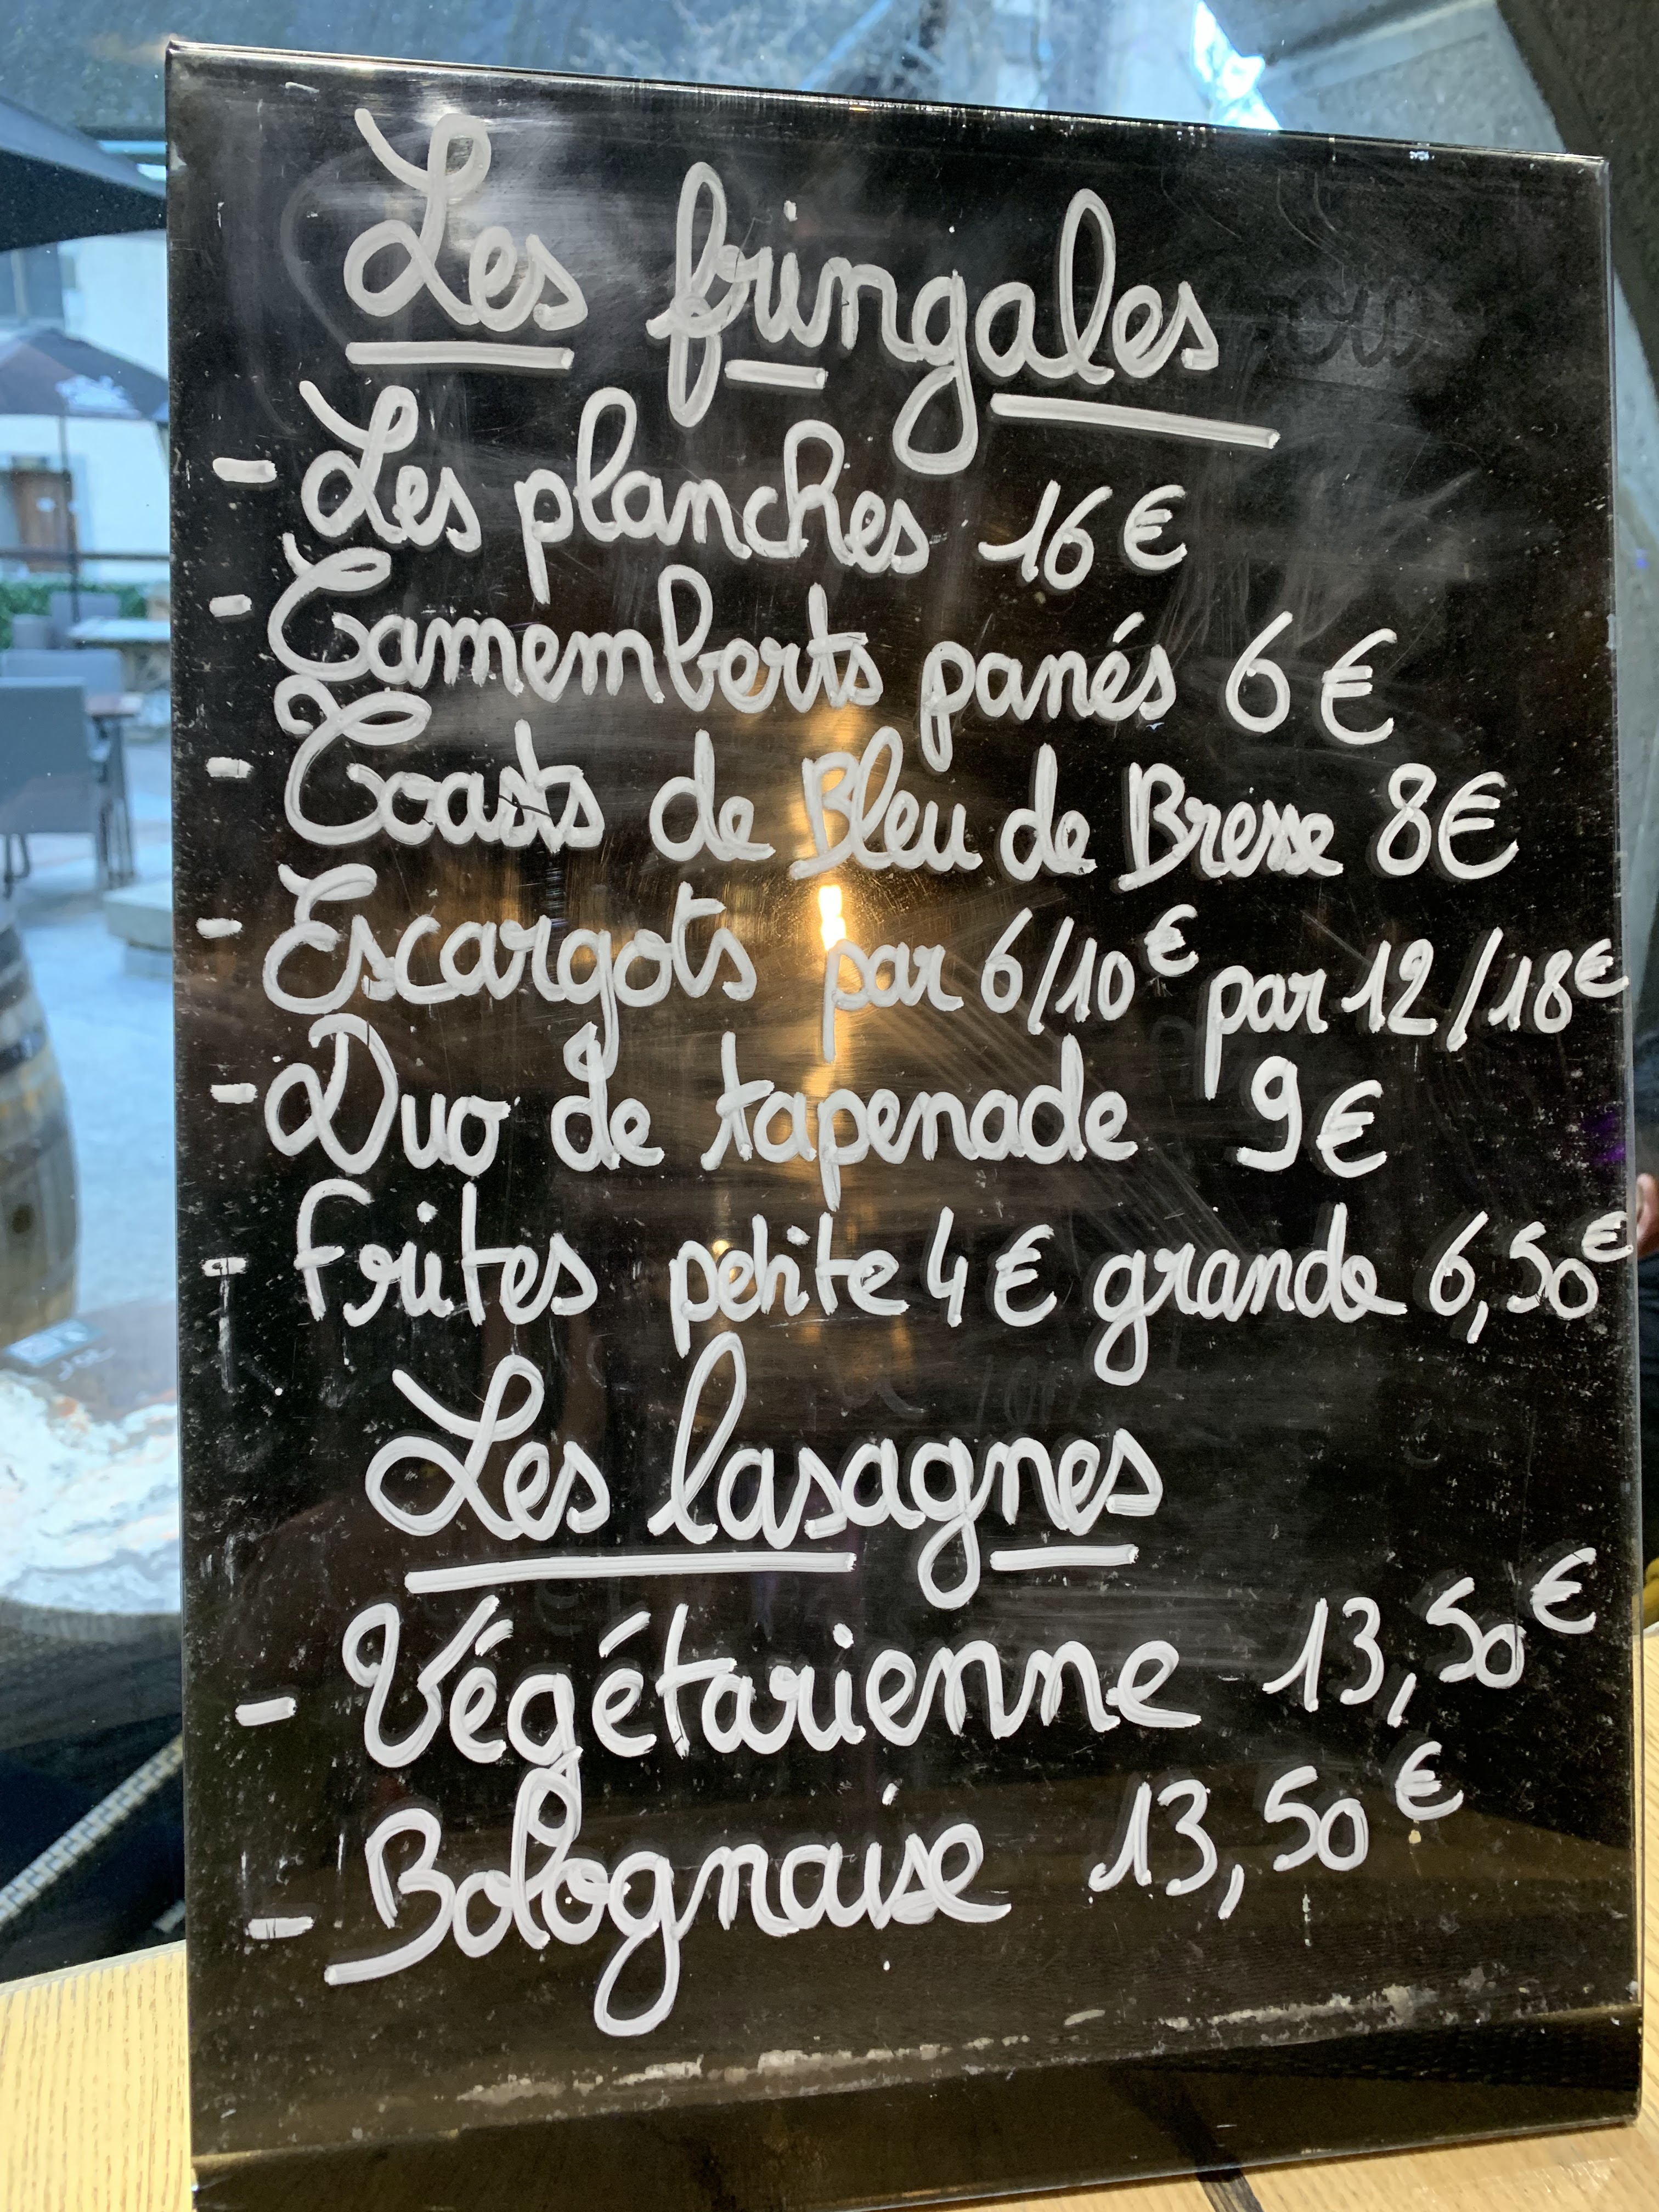 Les fringales
- Les planches 16€
- Camemberts panés 6€
- Toasts de Bleu de Bresse 8€
- Escargots par 6/10€ par 12/18€
- Duo de tapenade 9€
- Frites petite 4€ grande 6,50€
Les lasagnes
- Végétarienne 13,50€
- Bolognaise 13,50€